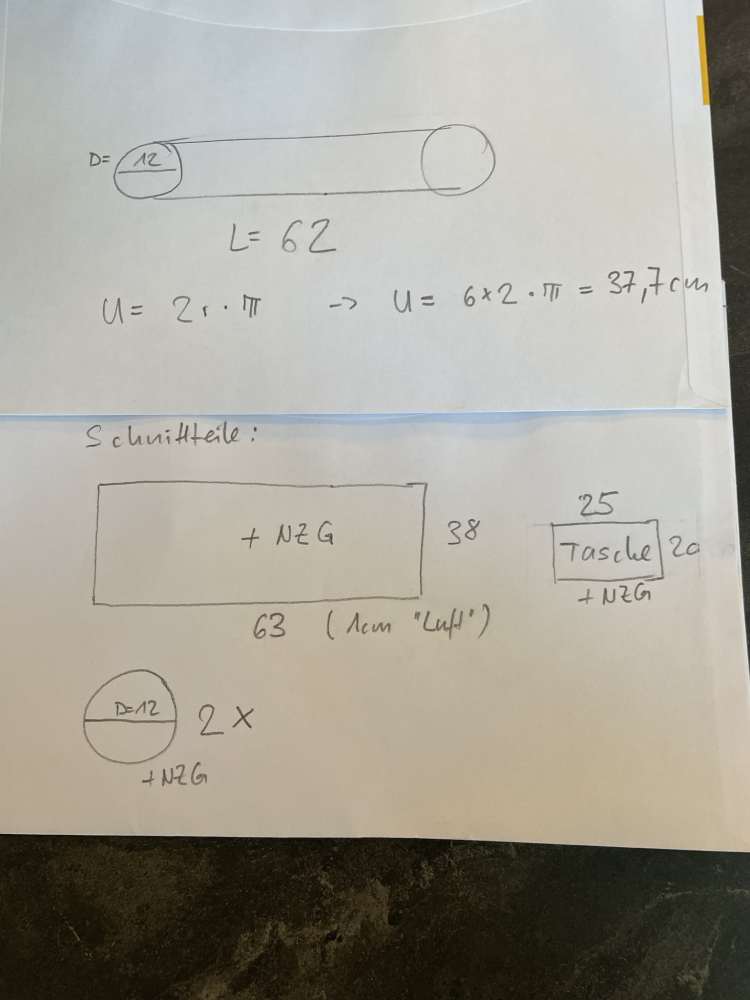 D= 12
L= 62
U= 2r·π -> U= 6×2·π = 37,7cm
Schnittteile:
+ NZG
38
63 (1cm "Luft")
25
Tasche 20
+NZG
D=12 2x
+NZG